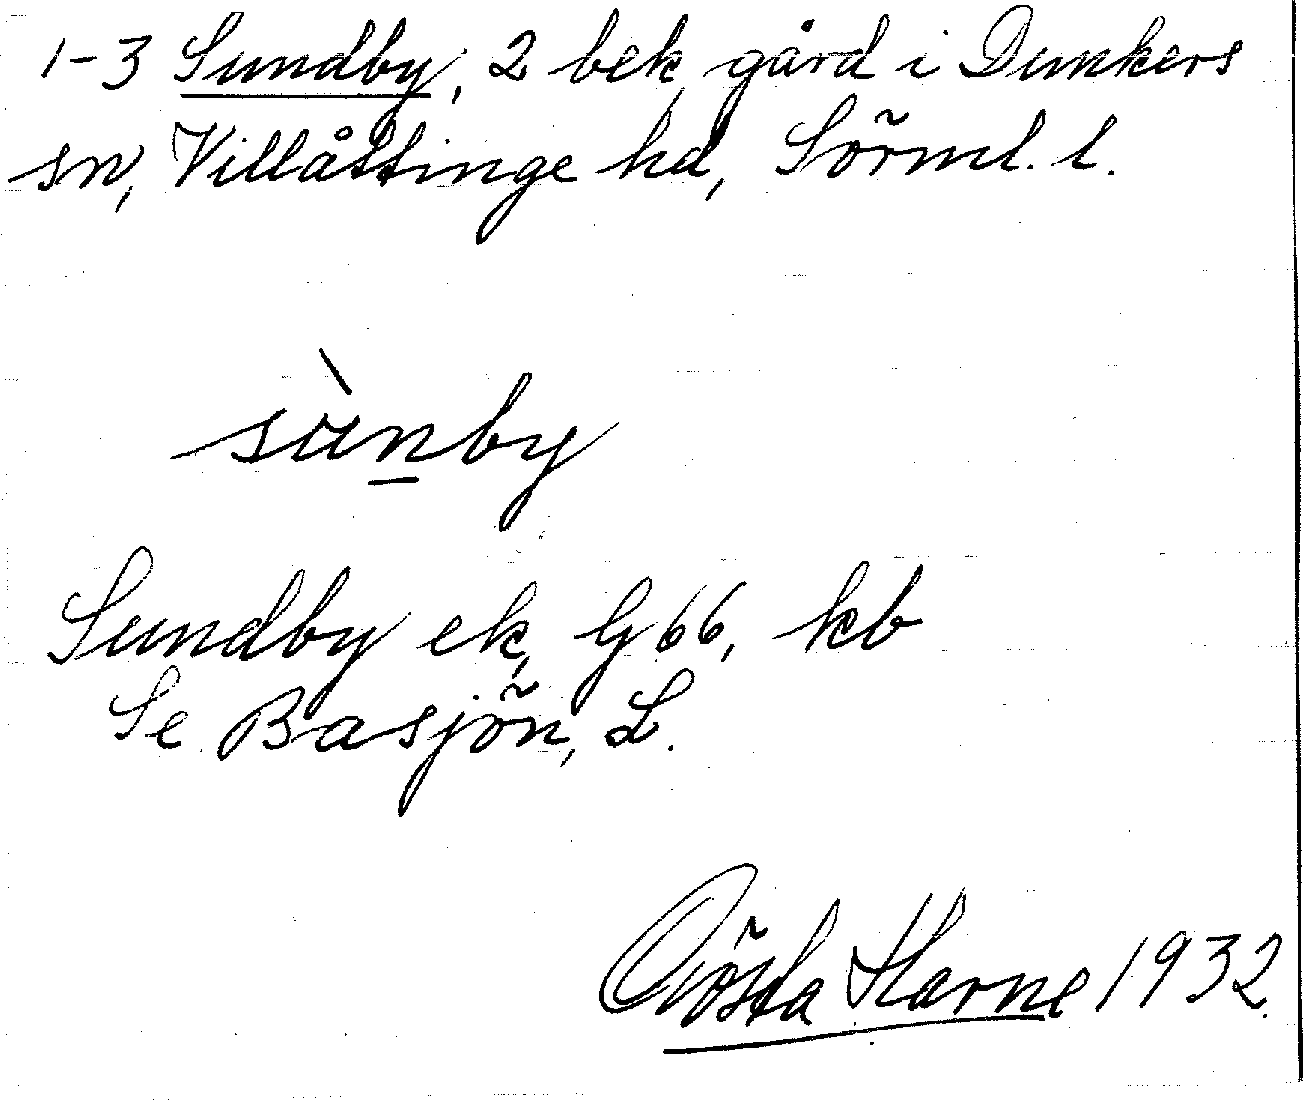 1-3 Sundby, 2 bek, gård i Dunkers
sn, Villåttinge hd, Sörml. l.
sùnby
Sundby ek, G 66, kb
Se Basjön, L.
Gösta Harne 1932.